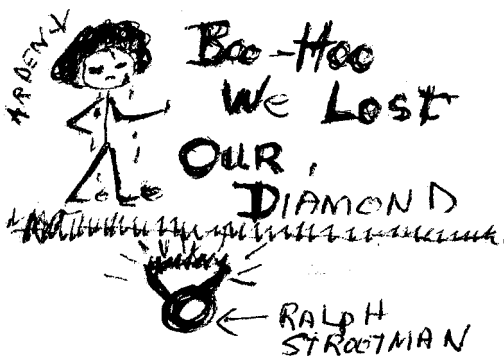 ARDEN
Boo-Hoo
We Lost
OUR
DIAMOND
RALPH
STROOTMAN